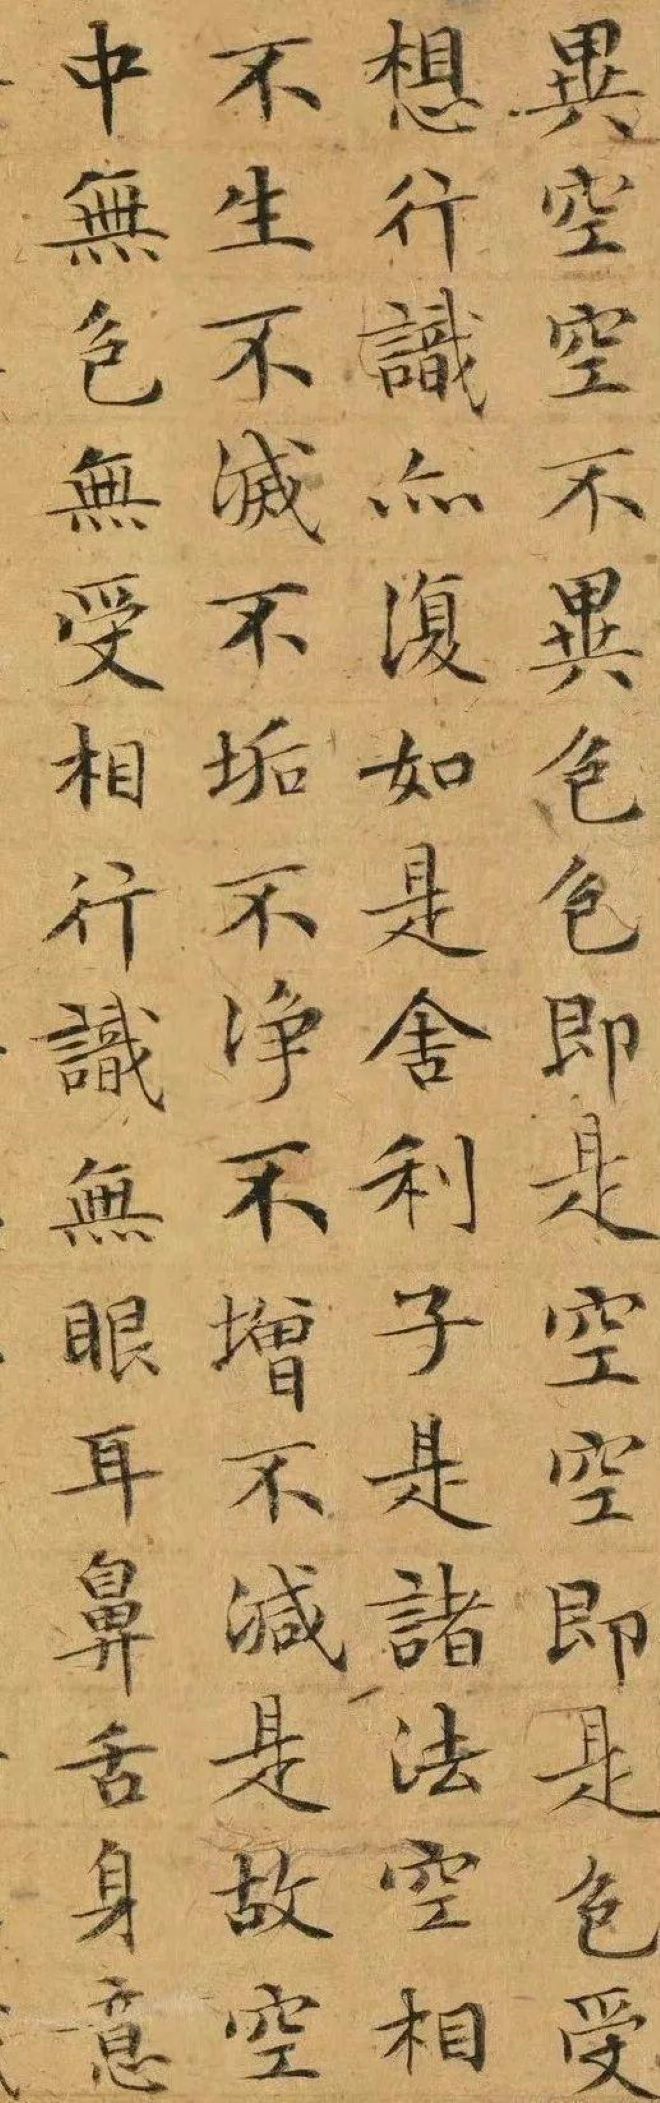 異空空不異色色即是空空即是色受
想行識亦復如是舍利子是諸法空相
不生不滅不垢不浄不增不減是故空
中無色無受相行識無眼耳鼻舌身意